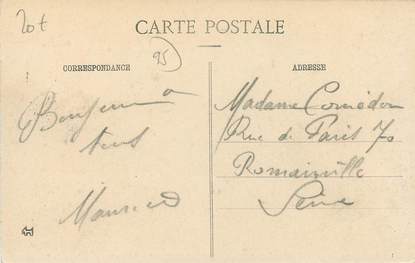 20t
CARTE POSTALE
95
CORRESPONDANCE
ADRESSE
Bonjour à
tous
Maurice
Madame Comédon
Rue de Paris 70
Romainville
Seine